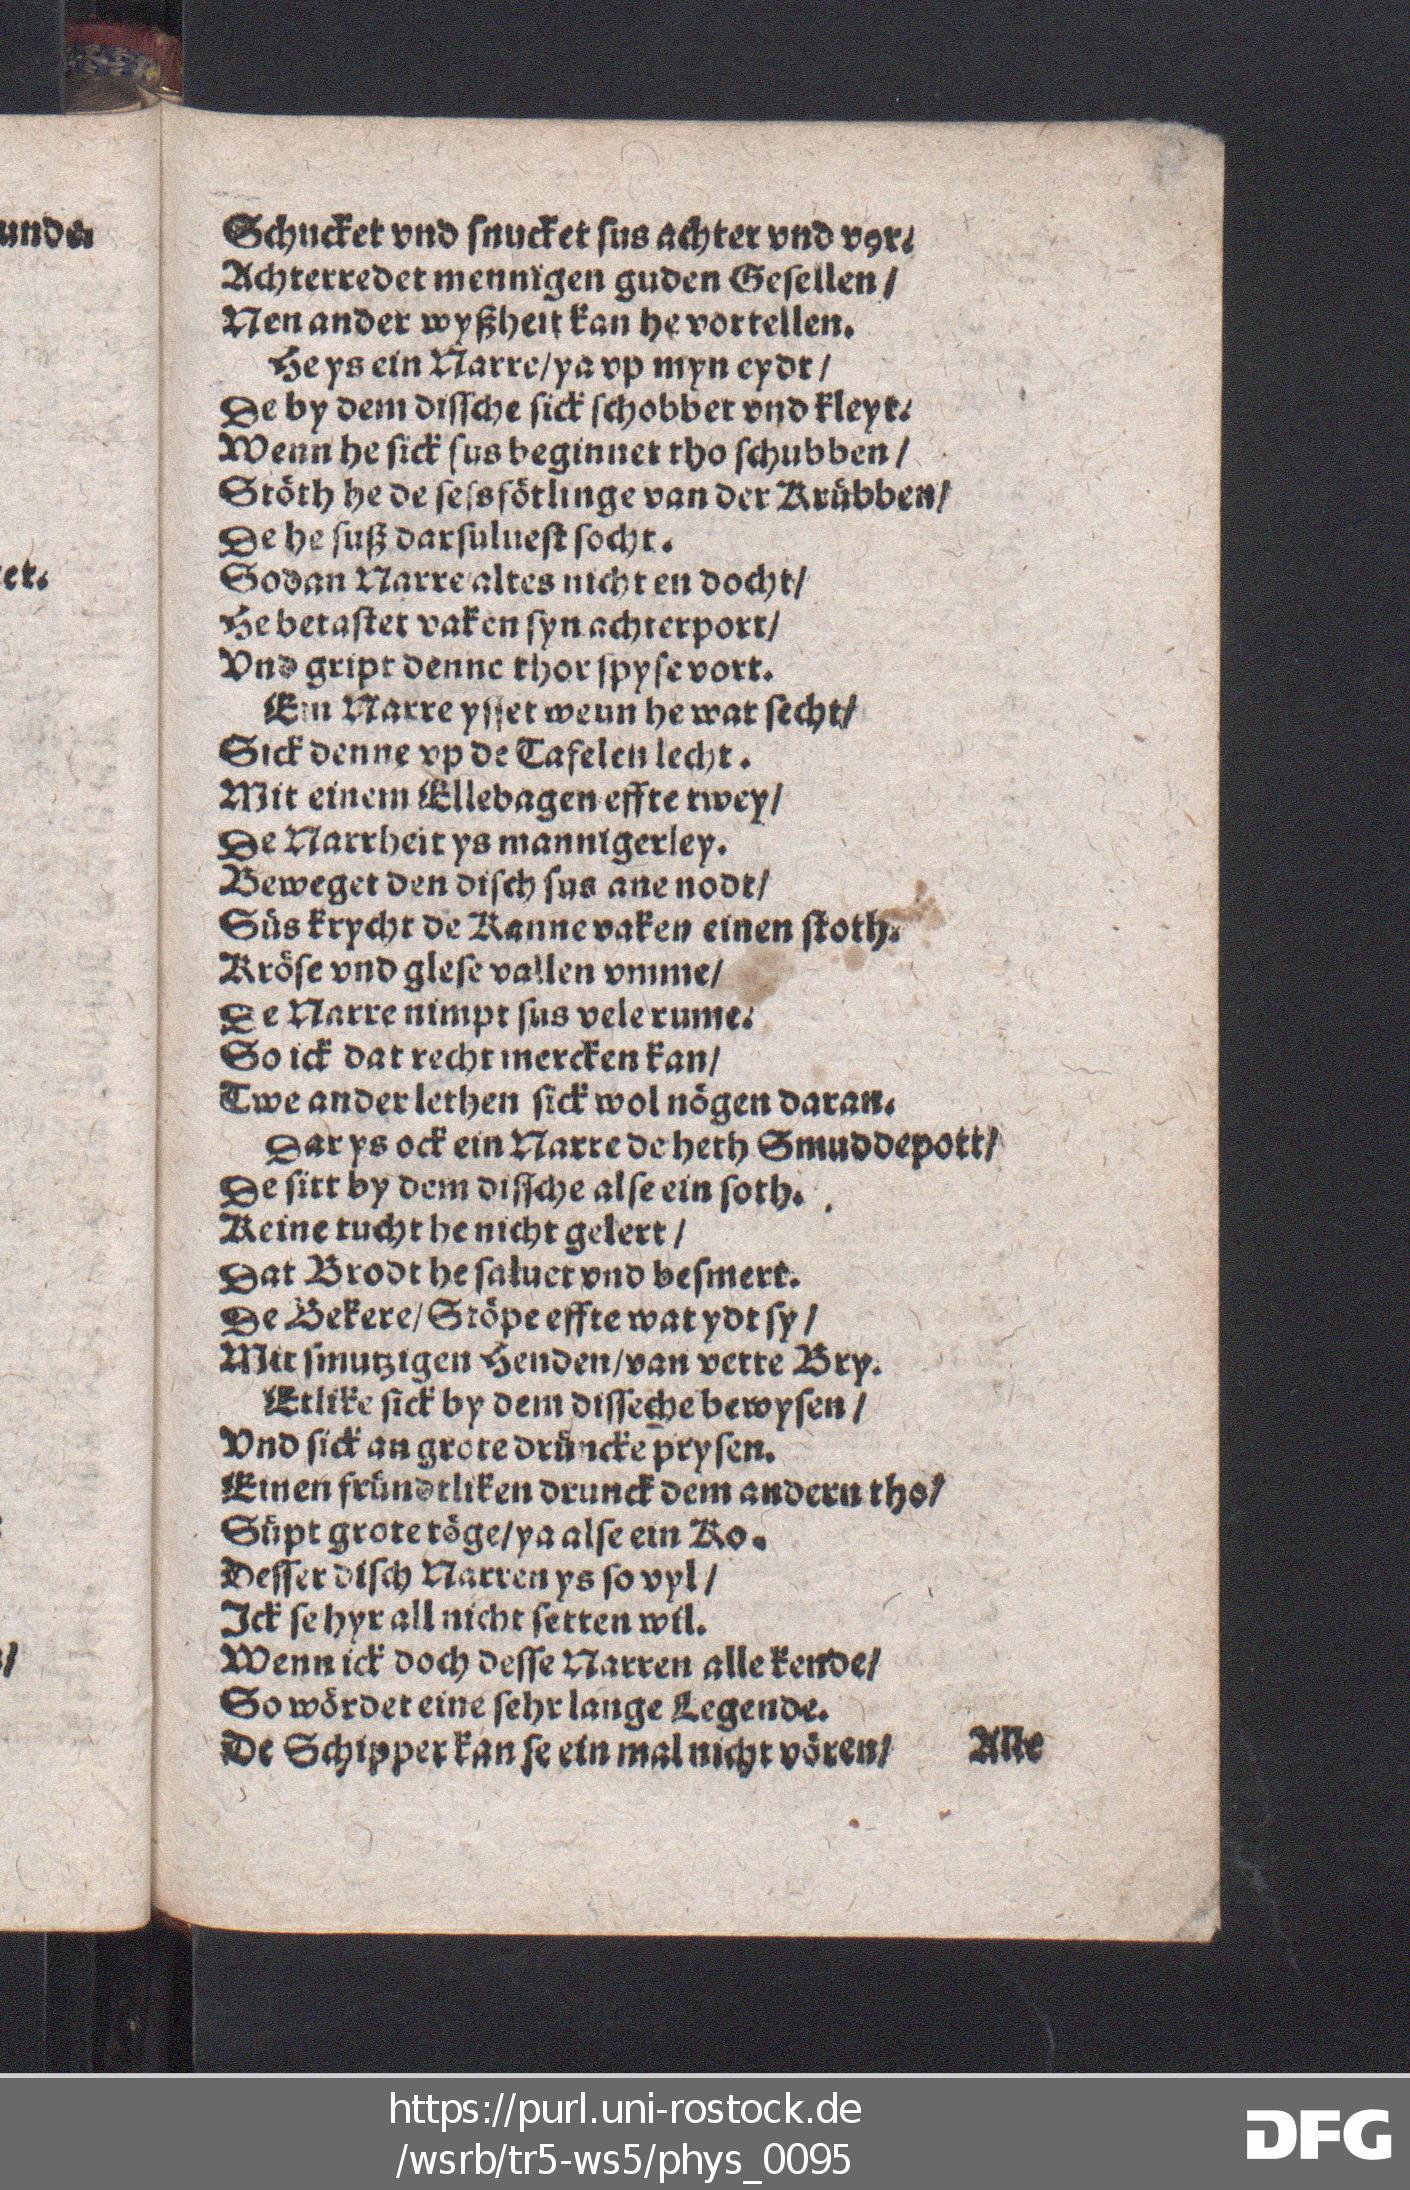 unde.
Schucket vnd snucket sus achter vnd vor.
Achterredet mennigen guden Gesellen /
Nen ander wyßheit kan he vortellen.
He ys ein Narre / ya vp myn eydt /
De by dem dissche sick schobbet vnd kleyt.
Wenn he sick sus beginnet tho schubben /
Stöth he de sessfötlinge van der Krübben /
De he suß darsuluest socht.
et.
Sodan Narre altes nicht en docht /
He betastet vaken syn achterport /
Vnd gript denne thor spyse vort.
Ein Narre ysset wenn he wat secht /
Sick denne vp de Tafelen lecht.
Mit einem Ellebagen effte twey /
De Narrheit ys mannigerley.
Beweget den disch sus ane nodt /
Süs krycht de Kanne vaken einen stoth.
Kröse vnd glese vallen vmme /
De Narre nimpt sus vele rume.
So ick dat recht mercken kan /
Twe ander lethen sick wol nögen daran.
Dar ys ock ein Narre de heth Smuddepott /
De sitt by dem dissche alse ein soth.
Keine tucht he nicht gelert /
Dat Brodt he saluet vnd besmert.
De Bekere / Stöpe effte wat ydt sy /
Mit smutzigen Henden / van vette Bry.
Etlike sick by dem disseche bewysen /
Vnd sick an grote drüncke prysen.
Einen fründtliken drunck dem andern tho /
Süpt grote töge / ya alse ein Ko.
Desser disch Narren ys so vyl /
Ick se hyr all nicht setten wil.
Wenn ick doch desse Narren alle kende /
So wördet eine sehr lange Legende.
De Schipper kan se ein mal nicht vören /
Alle
https://purl.uni-rostock.de
/wsrb/tr5-ws5/phys_0095
DFG